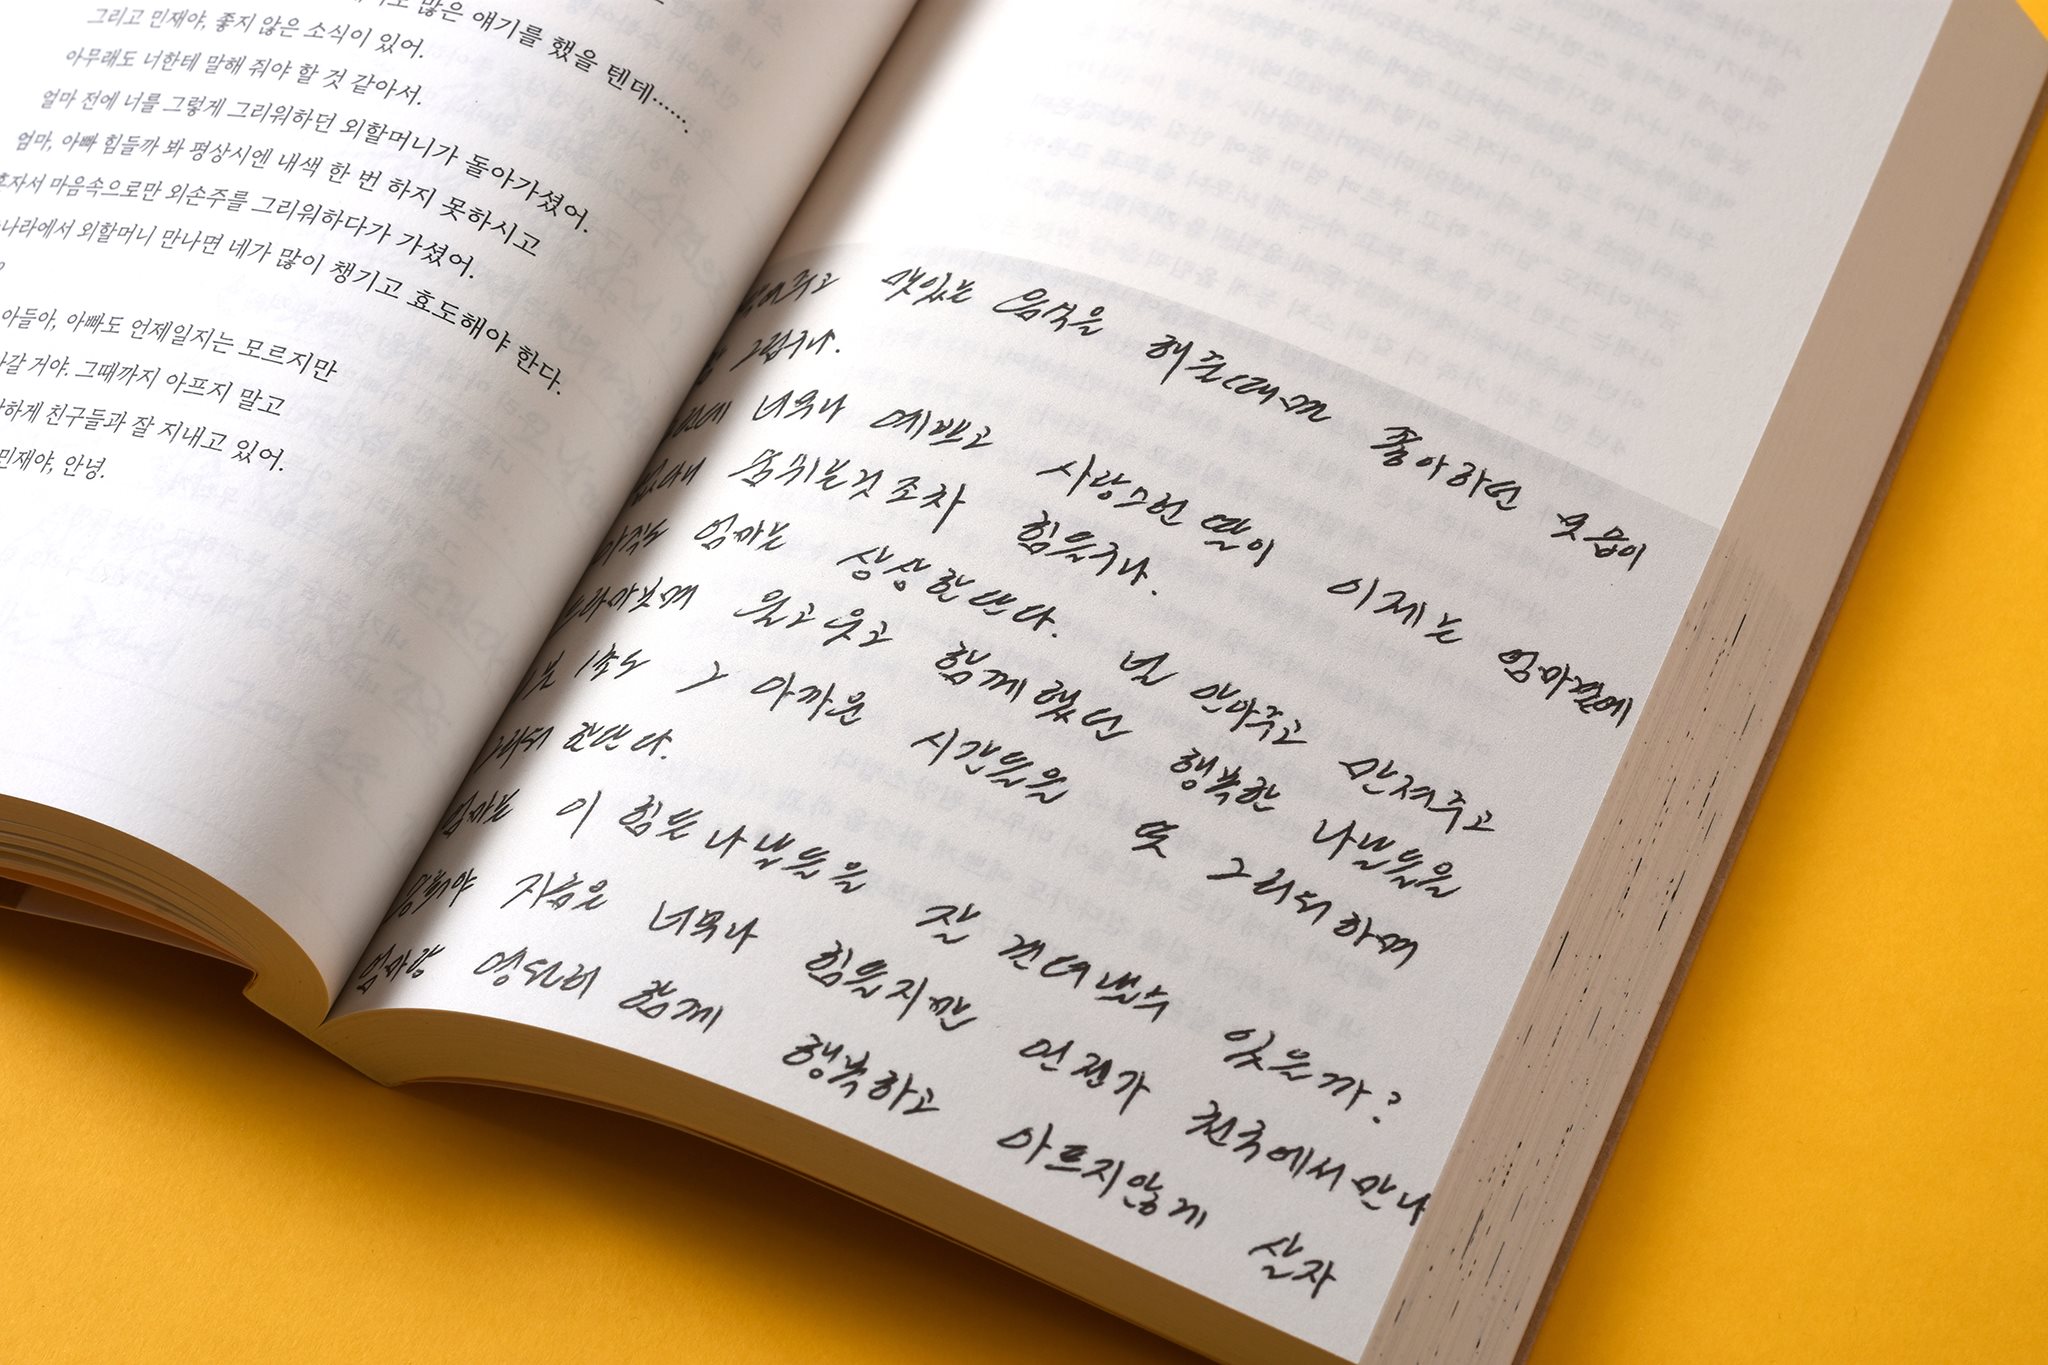 많은 얘기를 했을 텐데……
그리고 민재야, 좋지 않은 소식이 있어.
아무래도 너한테 말해 줘야 할 것 같아서.
얼마 전에 너를 그렇게 그리워하던 외할머니가 돌아가셨어.
엄마, 아빠 힘들까 봐 평상시엔 내색 한 번 하지 못하시고
혼자서 마음속으로만 외손주를 그리워하다가 가셨어.
나라에서 외할머니 만나면 네가 많이 챙기고 효도해야 한다.
아들아, 아빠도 언제일지는 모르지만
갈 거야. 그때까지 아프지 말고
하게 친구들과 잘 지내고 있어.
민재야, 안녕.
맛있는 음식을 해줄때면 좋아하던 모습이
그립구나.
너무나 예쁘고 사랑스런 딸이 이제는 엄마곁에
없다니 숨쉬는것조차 힘들구나.
아직도 엄마는 생생한단다. 널 안아주고 만져주고
울고 웃고 함께했던 행복한 나날들을
1초도 그 아까운 시간들을 또 그리워하며
그리워 한단다.
엄마는 이 힘든 나날들을 잘 견뎌낼수 있을까?
지금은 너무나 힘들지만 언젠가 천국에서 만나
엄마랑 영원히 함께 행복하고 아프지않게 살자